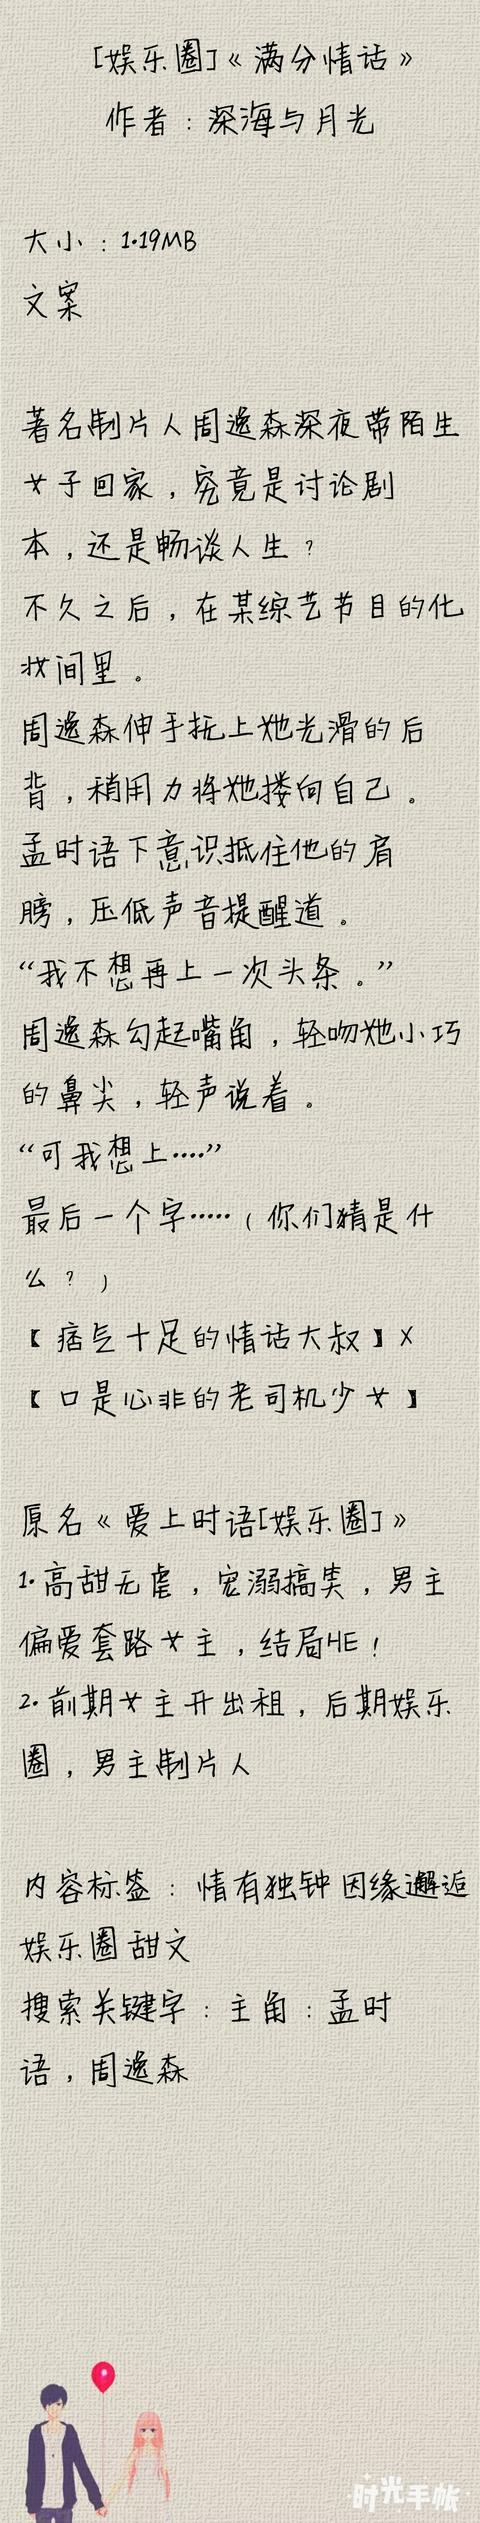 [娱乐圈]《满分情话》
作者：深海与月光
大小：1.19MB
文案
著名制片人周逸森深夜带陌生
女子回家，究竟是讨论剧
本，还是畅谈人生？
不久之后，在某综艺节目的化
妆间里。
周逸森伸手抚上她光滑的后
背，稍用力将她搂向自己。
孟时语下意识抵住他的肩
膀，压低声音提醒道。
“我不想再上一次头条。”
周逸森勾起嘴角，轻吻她小巧
的鼻尖，轻声说着。
“可我想上····”
最后一个字·····（你们猜是什
么？）
【痞气十足的情话大叔】X
【口是心非的老司机少女】
原名《爱上时语[娱乐圈]》
1.高甜无虐，宠溺搞笑，男主
偏爱套路女主，结局HE！
2.前期女主开出租，后期娱乐
圈，男主制片人
内容标签：情有独钟 因缘邂逅
娱乐圈 甜文
搜索关键字：主角：孟时
语，周逸森
时光手帐